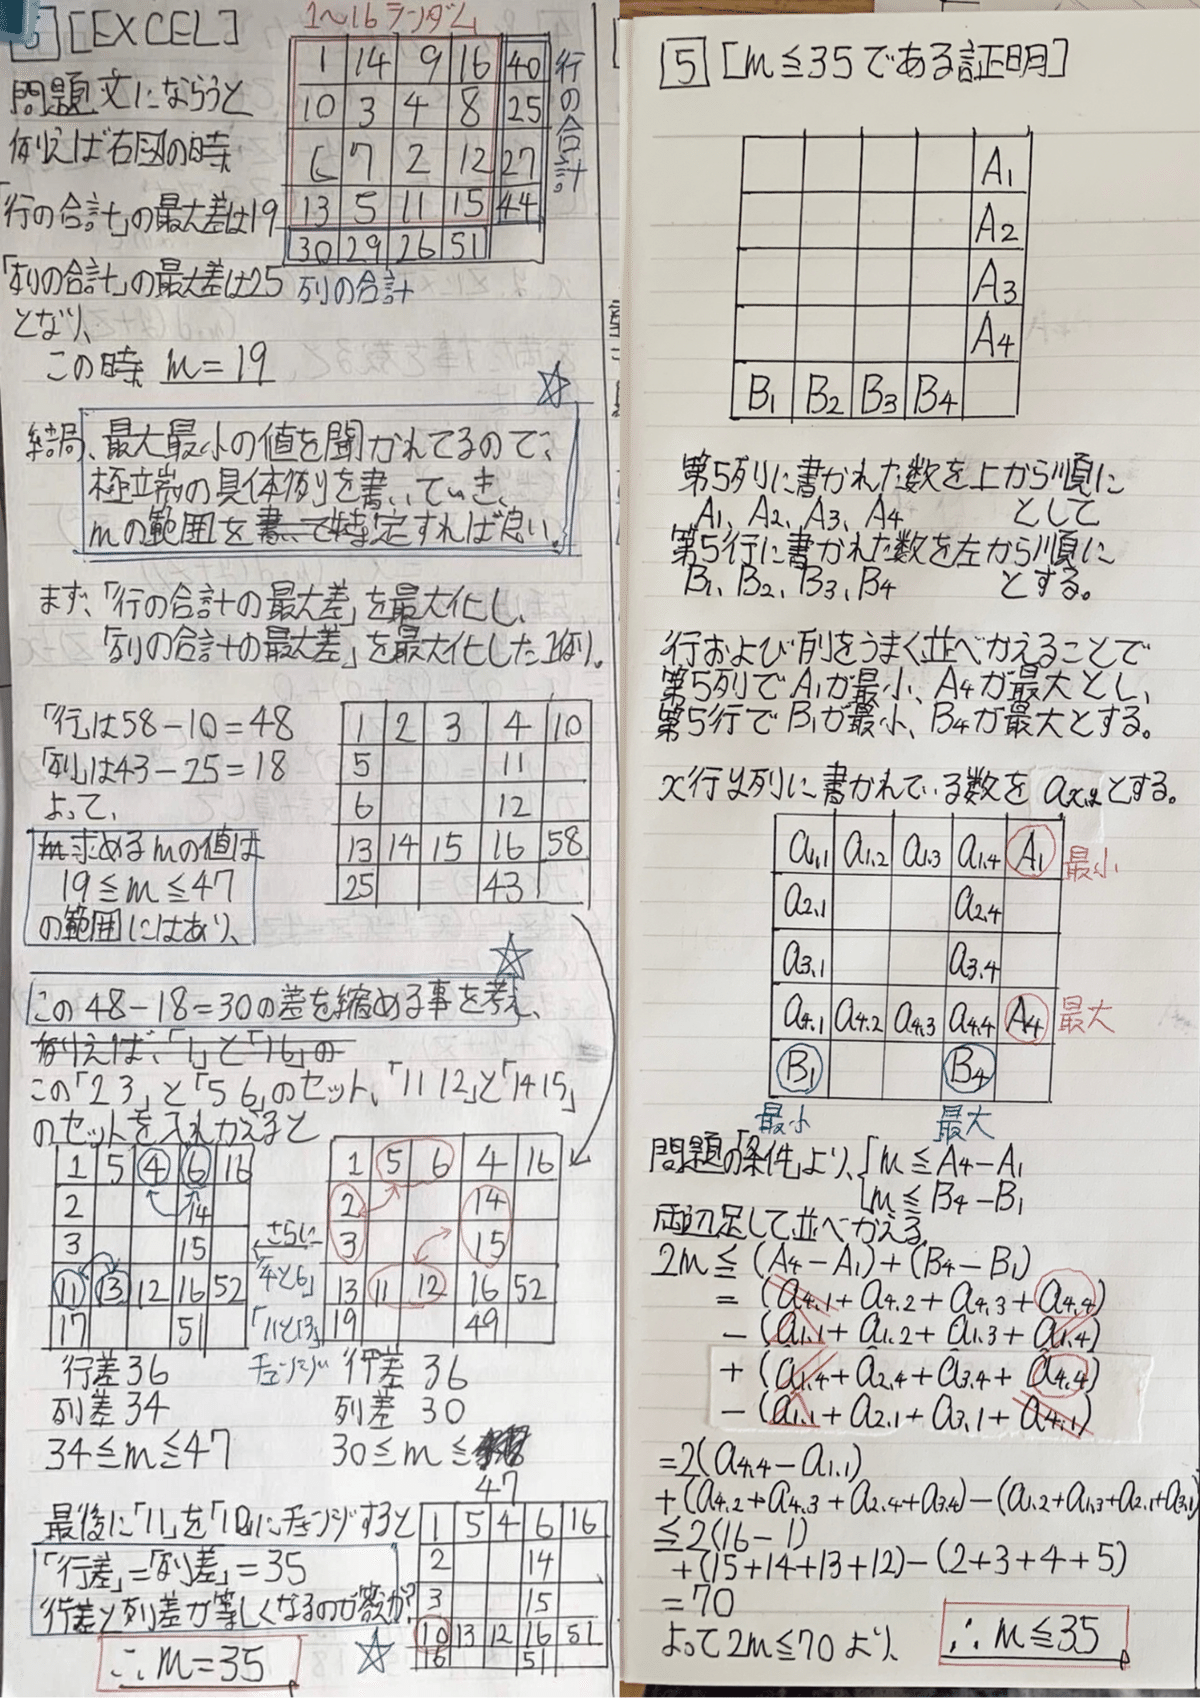 6 [EXCEL]
1~16ランダム
問題文にならうと
例えば右図の時
「行の合計」の最大差は19
「列の合計」の最大差は25
となり、
この時 m=19
1 14 9 16 40
10 3 4 8 25
6 7 2 12 27
13 5 11 15 44
30 29 26 51
行の合計。
列の合計
結局、最大最小の値を聞かれてるので、
極端の具体例を書いていき、
mの範囲を書いて特定すれば良い。
まず、「行の合計の最大差」を最大化し、
「列の合計の最大差」を最大化した1例。
「行」は58-10=48
「列」は43-25=18
よって、
求めるmの値は
19≦m≦47
の範囲にはあり、
1 2 3 4 10
5 11
6 12
13 14 15 16 58
25 43
この48-18=30の差を縮める事を考え、
例えば、「1」と「16」の
この「2 3」と「5 6」のセット、「11 12」と「14 15」
のセットを入れかえると
1 5 4 6 16
2 14
3 15
11 13 12 16 52
17 51
さらに
「4と6」
「11と13」
チェンジ
1 5 6 4 16
2 14
3 15
13 11 12 16 52
19 49
行差36
列差34
34≦m≦47
行差 36
列差 30
30≦m≦
47
最後に「11」を「10」にチェンジすると
「行差」=「列差」=35
行差と列差が等しくなるのが答えか?
∴m=35
1 5 4 6 16
2 14
3 15
10 13 12 16 51
16 51
5 [m≦35である証明]
A1
A2
A3
A4
B1 B2 B3 B4
第5列に書かれた数を上から順に
A1、A2、A3、A4 として
第5行に書かれた数を左から順に
B1、B2、B3、B4 とする。
行および列をうまく並べかえることで
第5列でA1が最小、A4が最大とし、
第5行でB1が最小、B4が最大とする。
x行y列に書かれている数をax,yとする。
a1,1 a1,2 a1,3 a1,4 A1 最小
a2,1 a2,4
a3,1 a3,4
a4,1 a4,2 a4,3 a4,4 A4 最大
B1 B4
最小 最大
問題の「条件」より、{m≦A4-A1
m≦B4-B1
両辺足して並べかえる。
2m≦(A4-A1)+(B4-B1)
=(a4,1+a4,2+a4,3+a4,4)
-(a1,1+a1,2+a1,3+a1,4)
+(a1,4+a2,4+a3,4+a4,4)
-(a1,1+a2,1+a3,1+a4,1)
=2(a4,4-a1,1)
+(a4,2+a4,3+a2,4+a3,4)-(a1,2+a1,3+a2,1+a3,1)
≦2(16-1)
+(15+14+13+12)-(2+3+4+5)
=70
よって2m≦70より、
∴m≦35